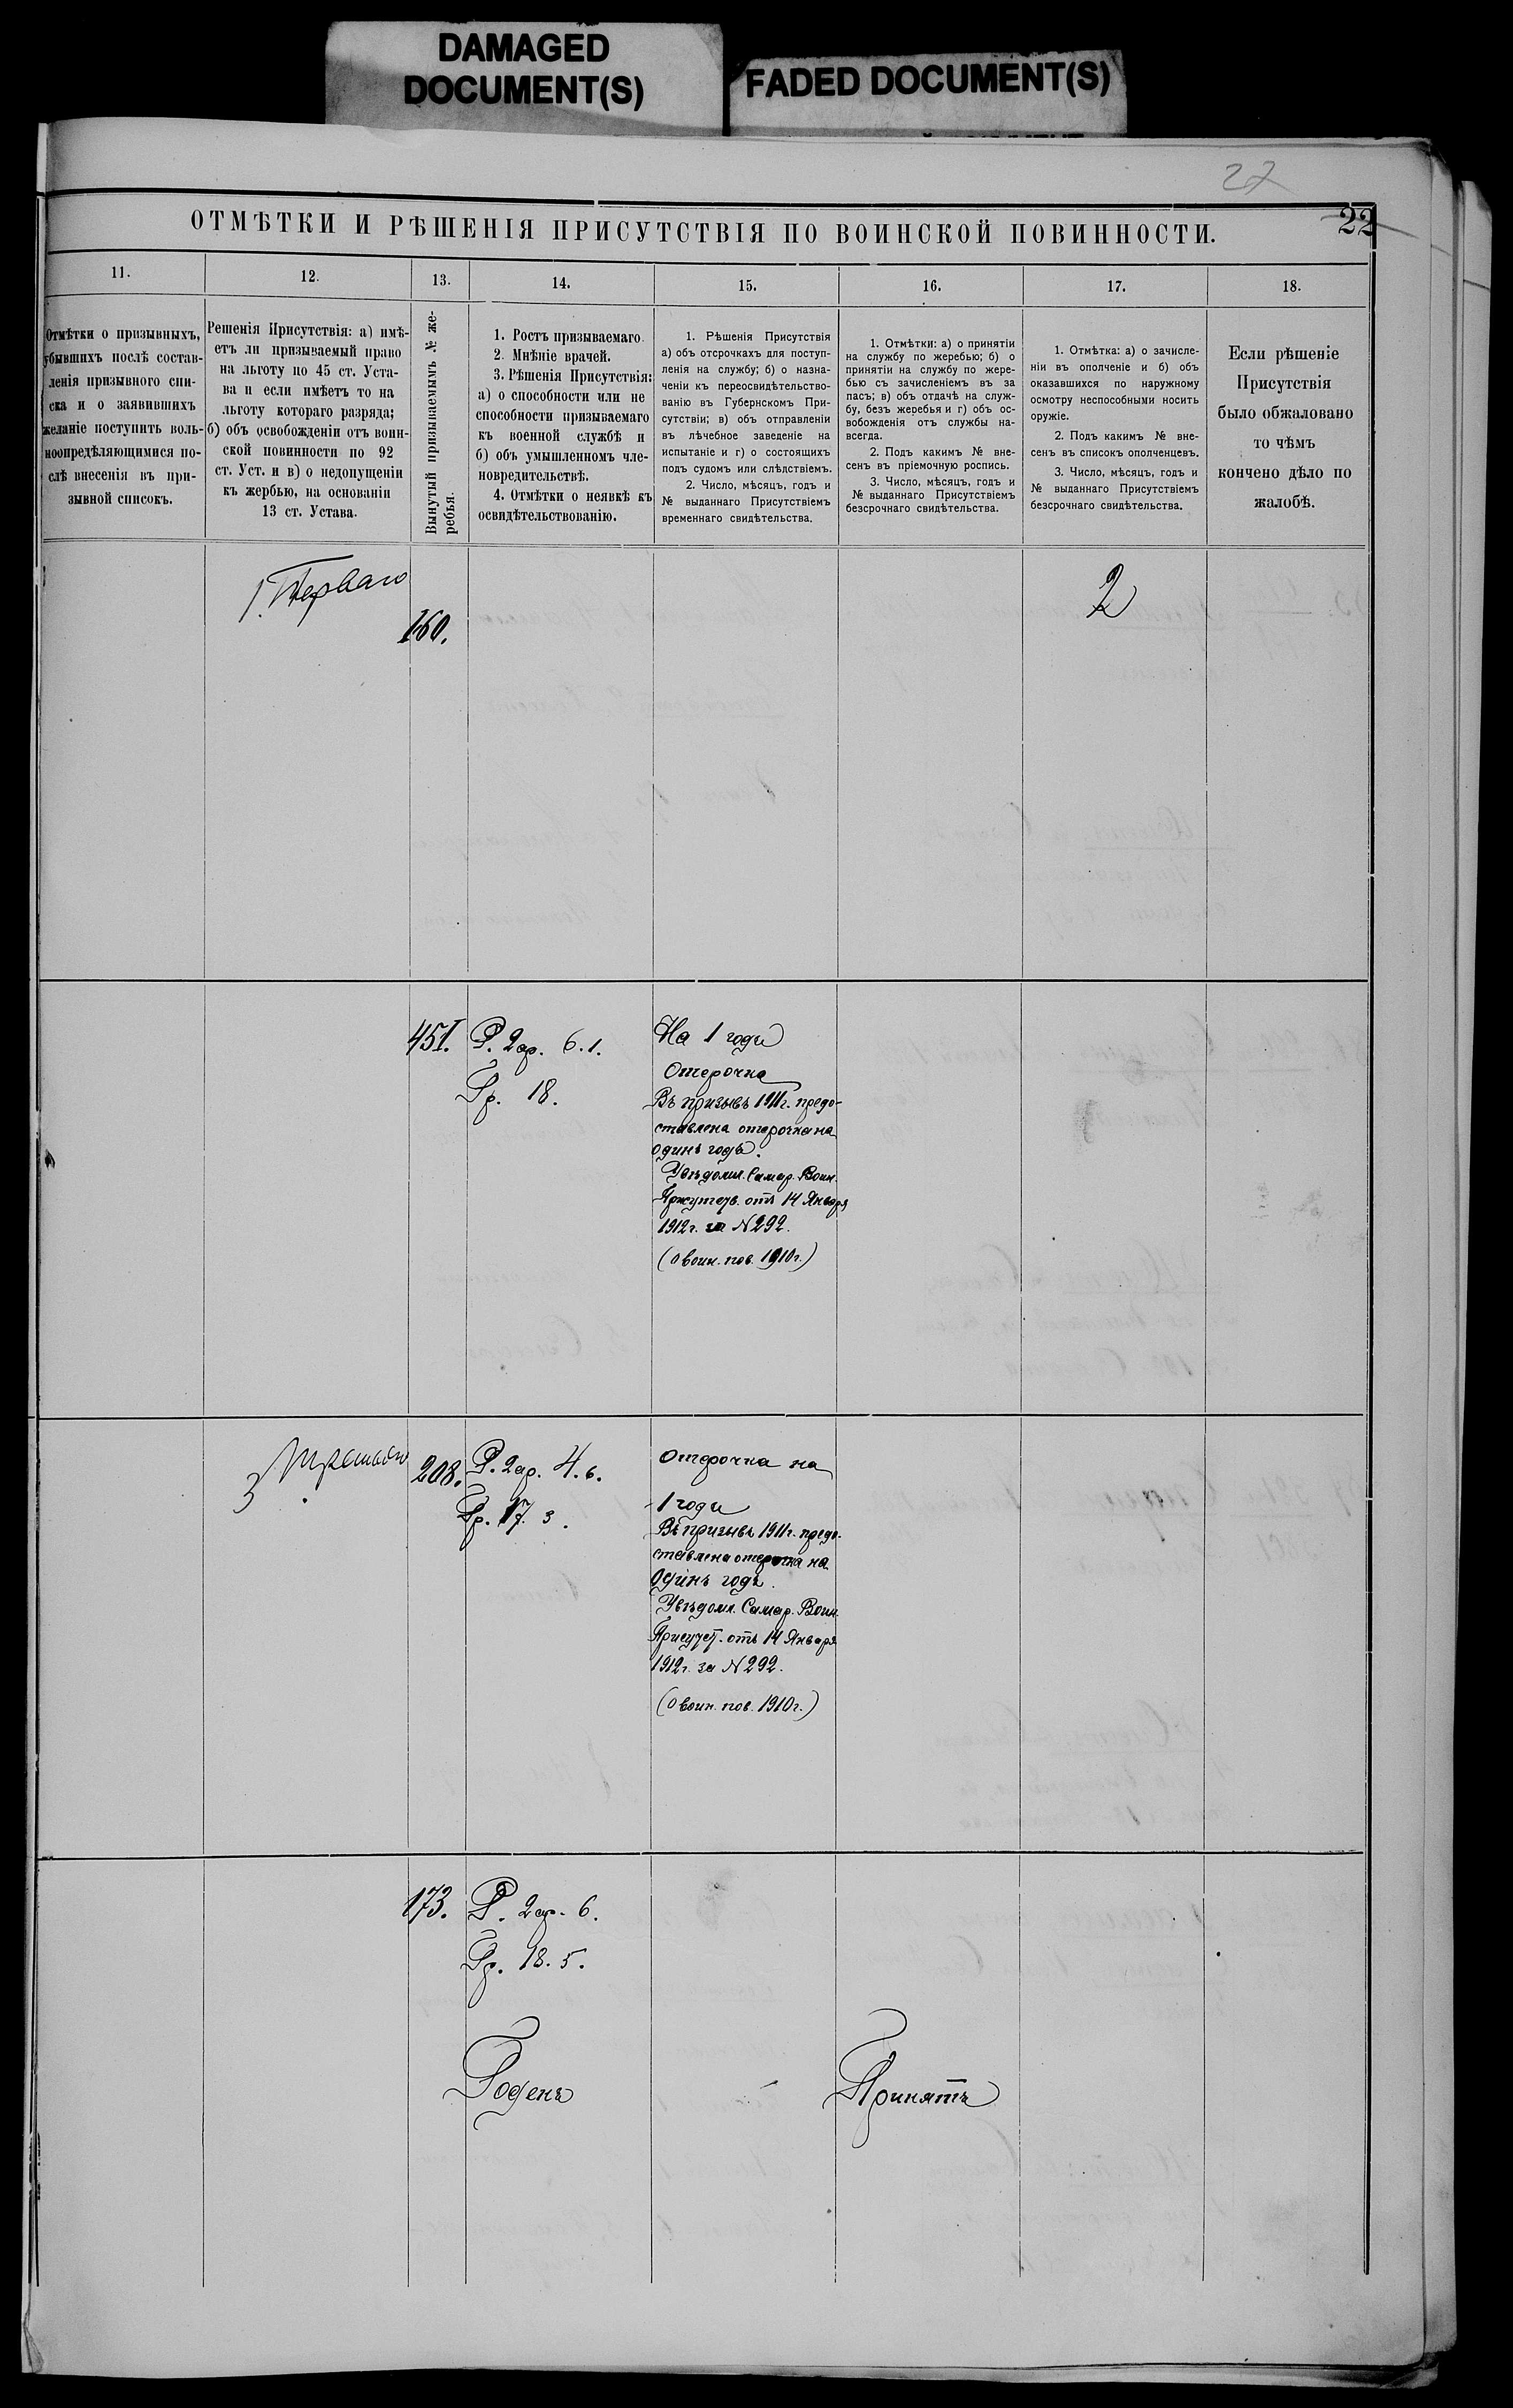 DAMAGED
DOCUMENT(S)
FADED DOCUMENT(S)
27
22
ОТМѢТКИ И РѢШЕНІЯ ПРИСУТСТВІЯ ПО ВОИНСКОЙ ПОВИННОСТИ.
11.
Отмѣтки о призывныхъ,
убывшихъ послѣ состав-
ленія призывного спи-
ска и о заявившихъ
желаніе поступить воль-
ноопредѣляющимися по-
слѣ внесенія въ при-
зывной списокъ.
12.
Решенія Присутствія: а) имѣ-
етъ ли призываемый право
на льготу по 45 ст. Уста-
ва и если имѣетъ то на
льготу котораго разряда;
б) объ освобожденіи отъ воин-
ской повинности по 92
ст. Уст. и в) о недопущеніи
къ жербью, на основаніи
13 ст. Устава.
13.
Вынутый призываемымъ № же-
ребья.
14.
1. Ростъ призываемаго.
2. Мнѣніе врачей.
3. Рѣшенія Присутствія:
а) о способности или не
способности призываемаго
къ военной службѣ и
б) объ умышленномъ чле-
новредительствѣ.
4. Отмѣтки о неявкѣ къ
освидѣтельствованію.
15.
1. Рѣшенія Присутствія
а) объ отсрочкахъ для поступ-
ленія на службу; б) о назна-
ченіи къ переосвидѣтельство-
ванію въ Губернскомъ При-
сутствіи; в) объ отправленіи
въ лѣчебное заведеніе на
испытаніе и г) о состоящихъ
подъ судомъ или слѣдствіемъ.
2. Число, мѣсяцъ, годъ и
№ выданнаго Присутствіемъ
временнаго свидѣтельства.
16.
1. Отмѣтки: а) о принятіи
на службу по жеребью; б) о
принятіи на службу по жере-
бью съ зачисленіемъ въ за
пасъ; в) объ отдачѣ на служ-
бу, безъ жеребья и г) объ ос-
вобожденія отъ службы на-
всегда.
2. Подъ какимъ № вне-
сенъ въ пріемочную роспись.
3. Число, мѣсяцъ, годъ и
№ выданнаго Присутствіемъ
безсрочнаго свидѣтельства.
17.
1. Отмѣтка: а) о зачисле-
ніи въ ополченіе и б) объ
оказавшихся по наружному
осмотру неспособными носить
оружіе.
2. Подъ какимъ № вне-
сенъ въ списокъ ополченцевъ.
3. Число, мѣсяцъ, годъ и
№ выданнаго Присутствіемъ
безсрочнаго свидѣтельства.
18.
Если рѣшеніе
Присутствія
было обжаловано
то чѣмъ
кончено дѣло по
жалобѣ.
1. Перваго
160.
2
451.
Р. 2 ар. 6.1.
Гр. 18.
На 1 годъ
Отсрочка
Въ призывъ 1911г. предо-
ставлена отсрочка на
одинъ годъ.
Увѣдомл. Самар. Воин.
Присутств. отъ 14 Января
1912г. за N 292.
(о воин. пов. 1910г.)
3 третьяго
208.
Р. 2 ар. 4.6.
Гр. 17. 3.
Отсрочка на
1 годъ
Въ призывъ 1911г. предо-
ставлена отсрочка на
одинъ годъ.
Увѣдомл. Самар. Воин.
Присутст. отъ 14 Января
1912г. за N 292.
(о воин. пов. 1910г.)
173.
Р. 2 ар. 6.
Гр. 18. 5.
Годенъ
Принятъ